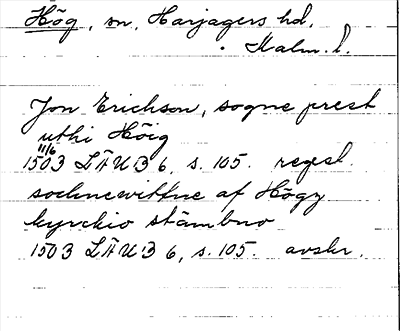 Hög, sn, Harjagers hd,
Malm. l.
Jon Erichson, sogne prest
uthi Höig
11/6
1503 LÄUB 6, s. 105. regest.
sochnewittne af Högy
kyrckio stämbno
1503 LÄUB 6, s. 105. avskr.